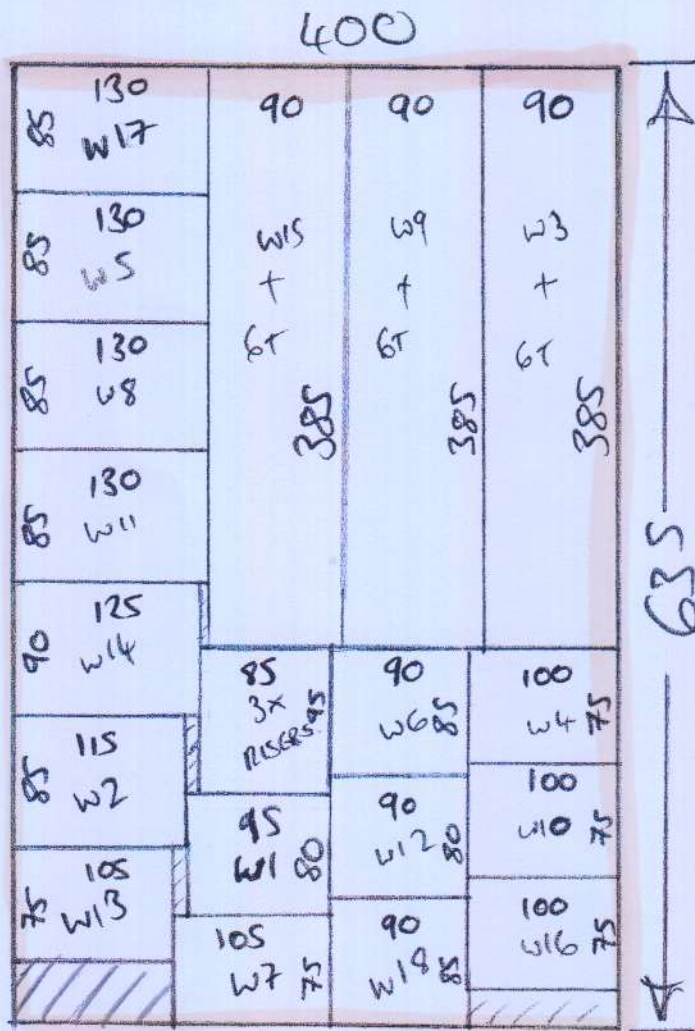 400
130
85
W17
130
85
W5
130
85
W8
130
85
W11
125
90
W14
115
85
W2
105
75
W13
90
W15
+
6T
385
90
W9
+
6T
385
90
W3
+
6T
385
85
3X
RISERS 95
95
W1 80
105
W7 75
90
W6 85
90
W12 80
90
W18 85
100
W4 75
100
W10 75
100
W16 75
635